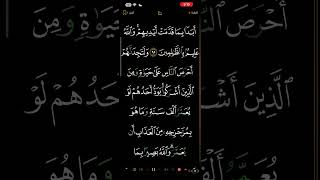 أَبَدًۢا بِمَا قَدَّمَتْ أَيْدِيهِمْ ۗ وَٱللَّهُ
عَلِيمٌۢ بِٱلظَّٰلِمِينَ ٩٥ وَلَتَجِدَنَّهُمْ
أَحْرَصَ ٱلنَّاسِ عَلَىٰ حَيَوٰةٍ وَمِنَ
ٱلَّذِينَ أَشْرَكُوا۟ ۚ يَوَدُّ أَحَدُهُمْ لَوْ
يُعَمَّرُ أَلْفَ سَنَةٍ وَمَا هُوَ
بِمُزَحْزِحِهِۦ مِنَ ٱلْعَذَابِ أَن
يُعَمَّرَ ۗ وَٱللَّهُ بَصِيرٌۢ بِمَا